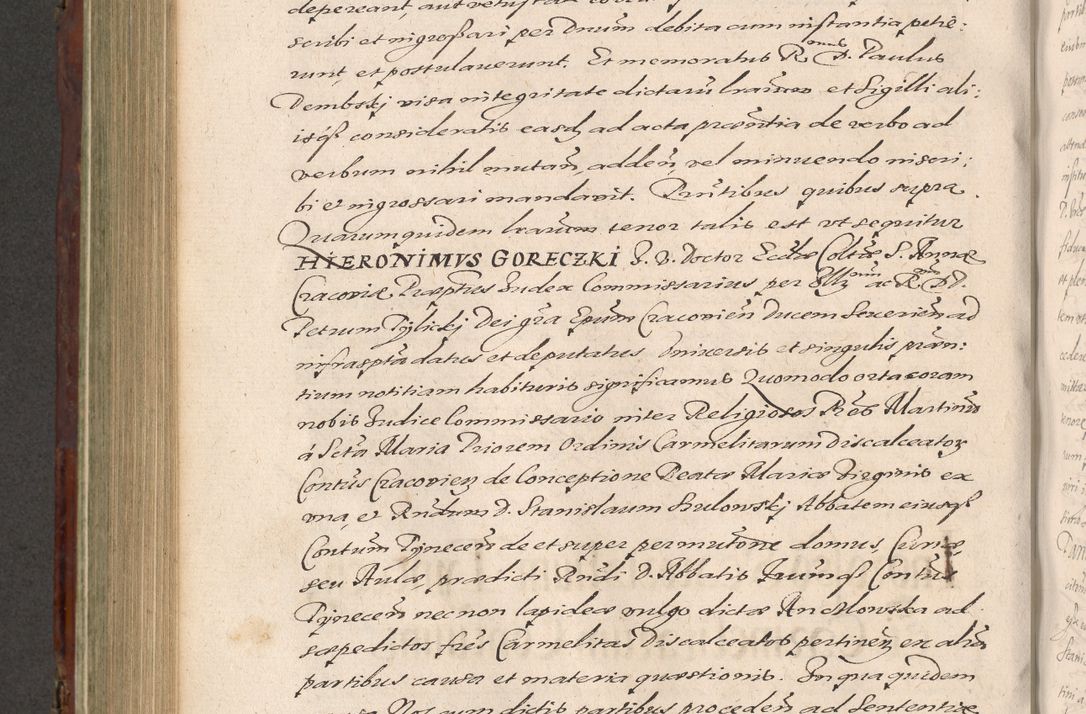 depereant, aut vetustate
scribi et ingrossari per Dnum debita cum instantia petie:
runt, et postulaverunt. Et memoratus R D. Paulus
Dembskj visa integritate dictarũ lrarum et Sigilli ali:
isq consideratis easdē ad acta præntia de verbo ad
verbum nihil mutañ, addeñ, vel minuendo inscri:
bi et ingrossari mandavit. Pñtibus quibus supra.
Quarumquidem lrarum tenor talis est vt sequitur
HIERONIMVS GORECZKI I. V. Doctor Eccliæ Colltæ S. Annæ
Cracoviæ Præptus Iudex Commissarius per Illm ac R D D.
Petrum Tÿlickj Dei gra Epum Cracovieñ Ducem Severieñ ad
infrascpta datus et deputatus. Vniversis et singulis præn:
tium notitiam habituris significamus Quomodo orta coram
nobis Iudice Commissario inter Religiosos Res Martinum
á Scta Maria Priorem Ordinis Carmelitarum Discalceator
Contus Cracovien de Conceptione Beatæ Mariæ Virginis ex
vna, et Rndum D. Stanislaum Sulowskj Abbatem eiusq
Contum Tyneceñ de et super permutone domus, Curiæ,
seu Aulæ, prædicti Rndi D. Abbatis Contus
Tÿneceñ necnon lapideæ vulgo dictæ ad
sæpedictos fres Carmelitas Discalceatos pertineñ ex alia
partibus causa et materia quæstionis. In qua quidem
Nos cum dictis partibus procedeñ ad Sententiæ